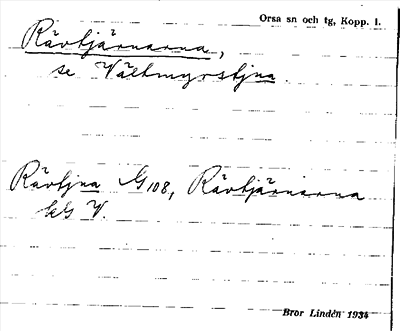 Orsa sn och tg, Kopp. l.
Rävtjärnarna,
se Vältmyrstjna.
Rävtjna G108, Rävtjärnarna
bG V.
Bror Lindén 1934